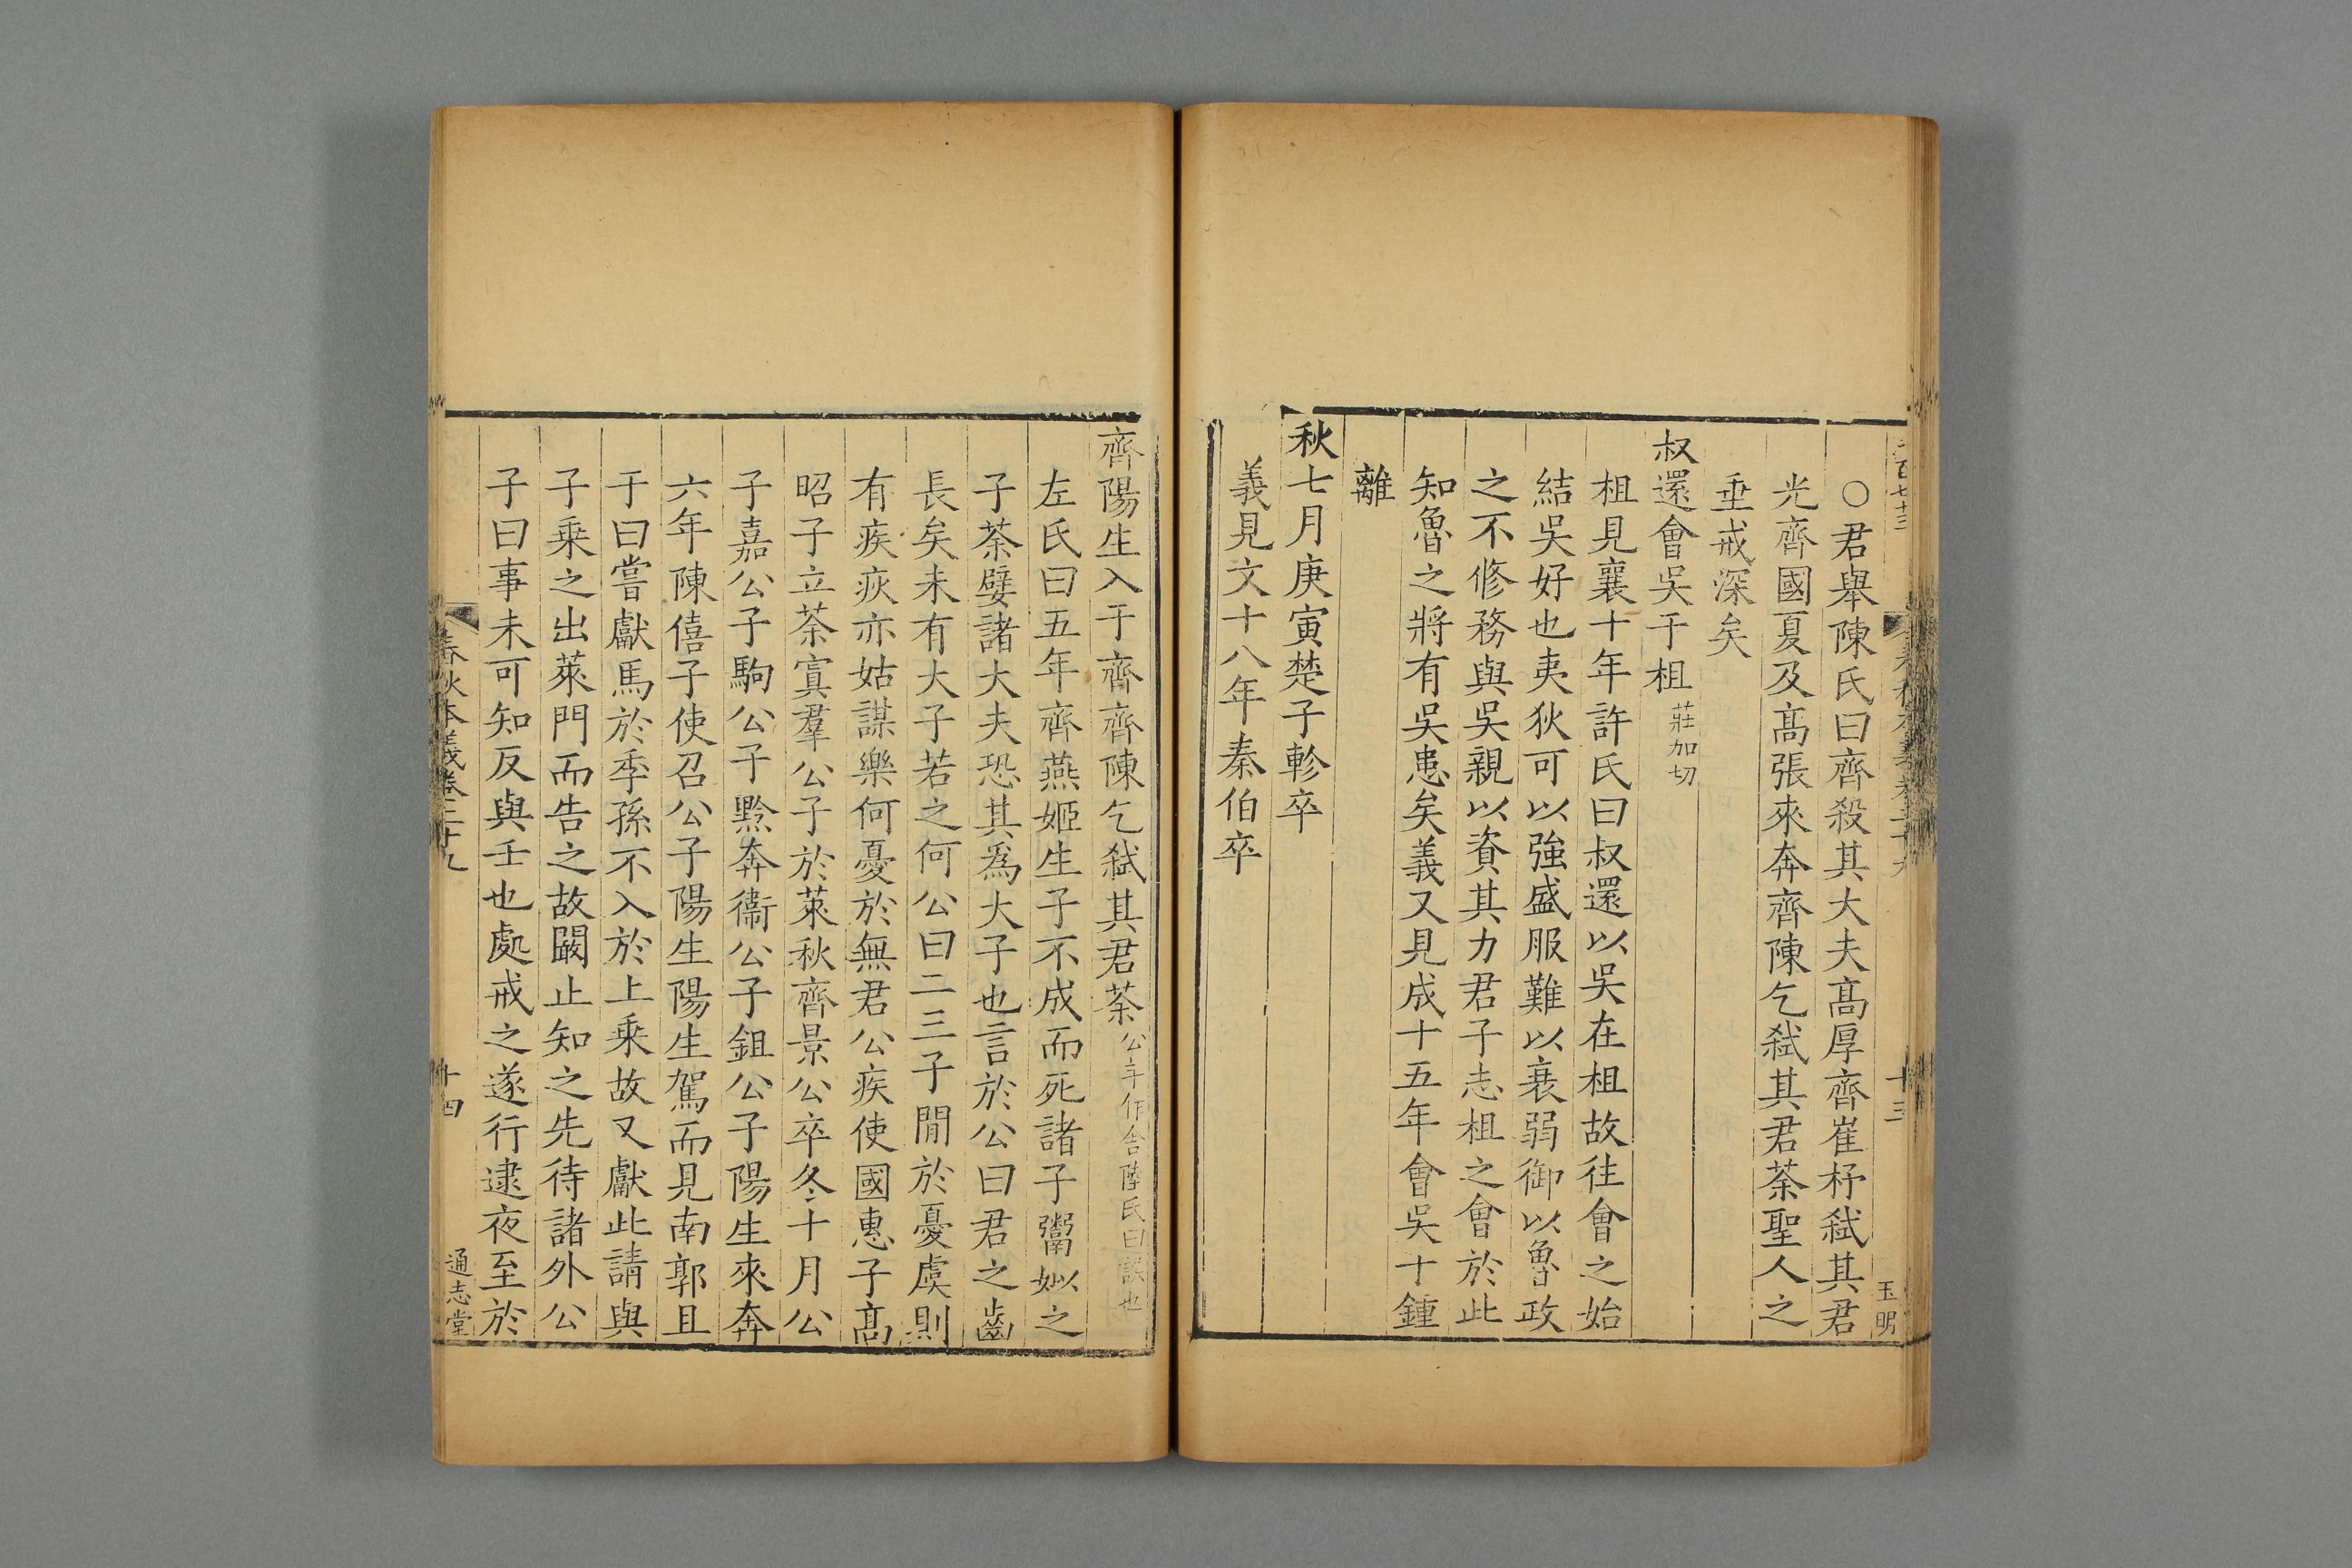 百七十三
十三
玉明
○君舉陳氏曰齊殺其大夫髙厚齊崔杼弑其君
光齊國夏及髙張來奔齊陳乞弑其君荼聖人之
垂戒深矣
叔還會吳于柤莊加切
柤見襄十年許氏曰叔還以吳在柤故往會之始
結吳好也夷狄可以強盛服難以衰弱御以魯政
之不修務與吳親以資其力君子志柤之會於此
知魯之將有吳患矣義又見成十五年會吳十鍾
離
秋七月庚寅楚子軫卒
義見文十八年秦伯卒
齊陽生入于齊齊陳乞弑其君荼公羊作舍陸氏曰誤也
左氏曰五年齊燕姬生子不成而死諸子鬻姒之
子荼嬖諸大夫恐其爲大子也言於公曰君之齒
長矣未有大子若之何公曰二三子間於憂虞則
有疾疢亦姑謀樂何憂於無君公疾使國惠子髙
昭子立荼寘羣公子於萊秋齊景公卒冬十月公
子嘉公子駒公子黔奔衞公子鉏公子陽生來奔
六年陳僖子使召公子陽生陽生駕而見南郭且
于曰嘗獻馬於季孫不入於上乘故又獻此請與
子乘之出萊門而告之故闞止知之先待諸外公
子曰事未可知反與壬也處戒之遂行逮夜至於
春秋本義卷三十九
十四
通志堂